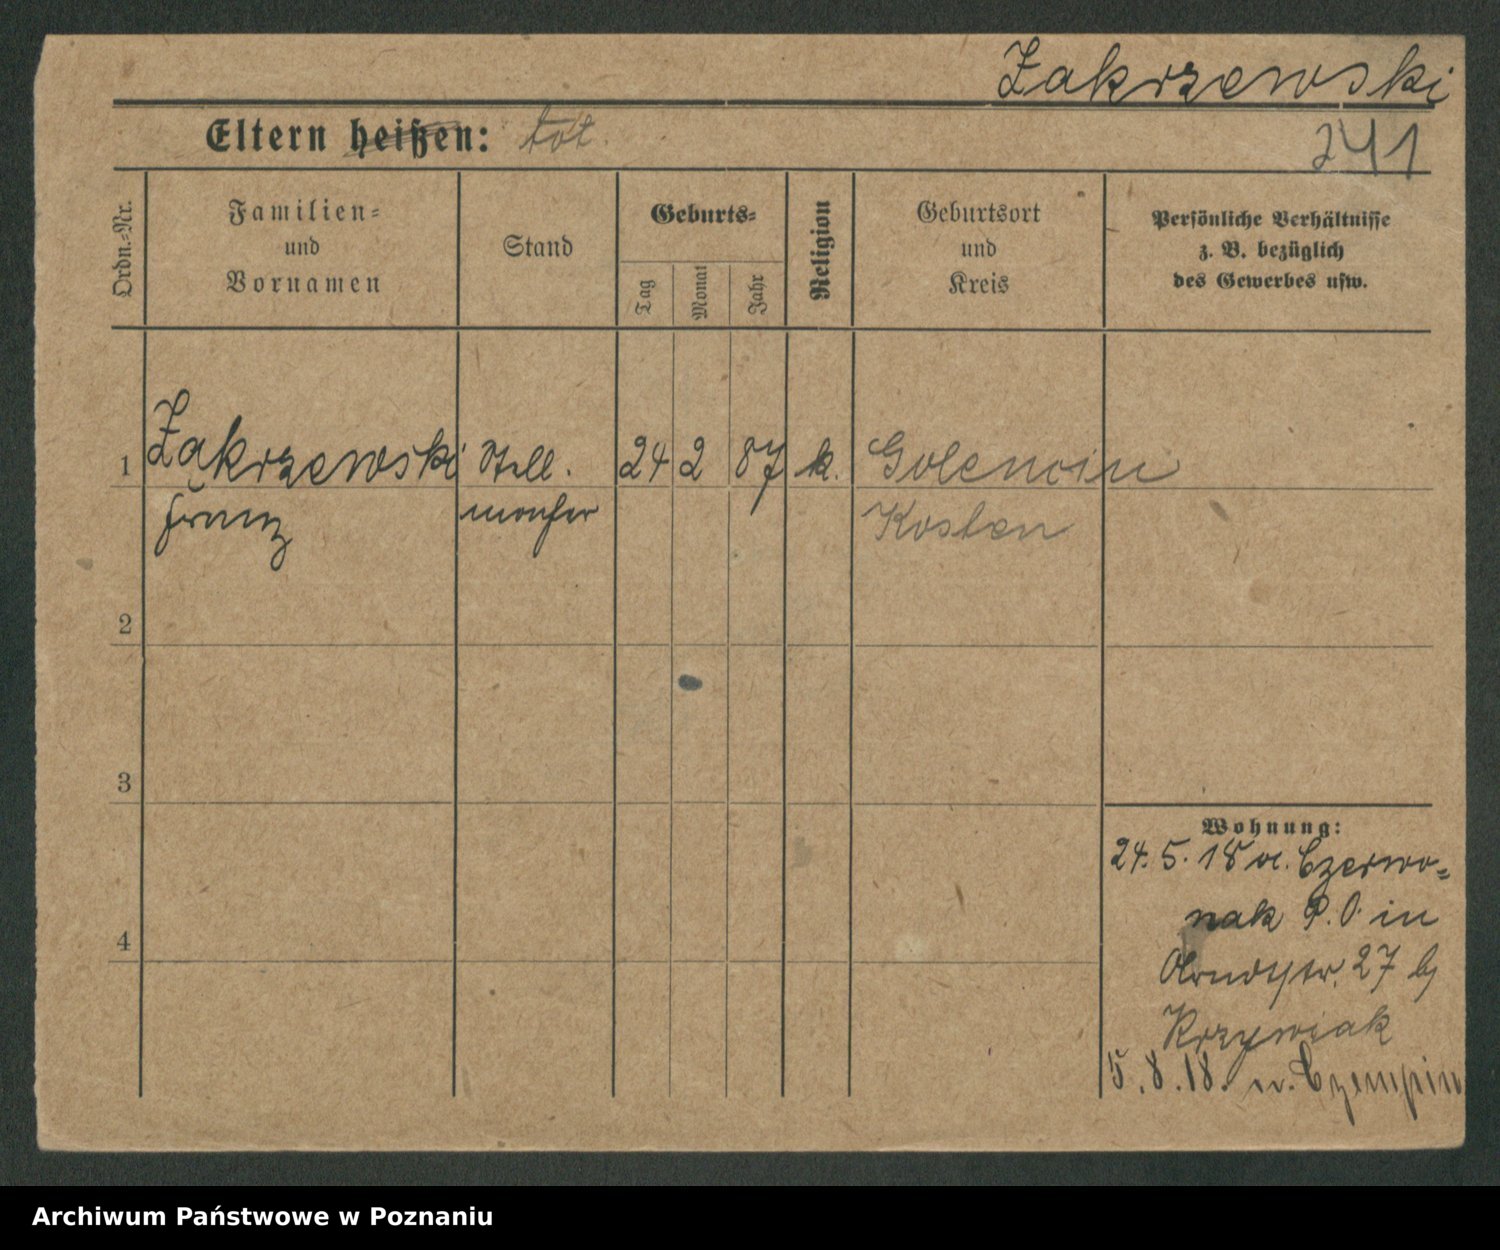 Zakrzewski
Eltern heißen: tot.
241
Ordn.-Nr.
Familien-
und
Vornamen
Stand
Geburts-
Tag
Monat
Jahr
Religion
Geburtsort
und
Kreis
Persönliche Verhältnisse
z. B. bezüglich
des Gewerbes usw.
1 Zakrzewski Stell. 24 2 87 k. Golencin
Franz macher Kosten
2
3
4
Wohnung:
24. 5. 18 v. Czerwo-
nak P. O. in
Arndtstr. 27 b/
Krzywiak
5. 8. 18. n. Czempin
Archiwum Państwowe w Poznaniu